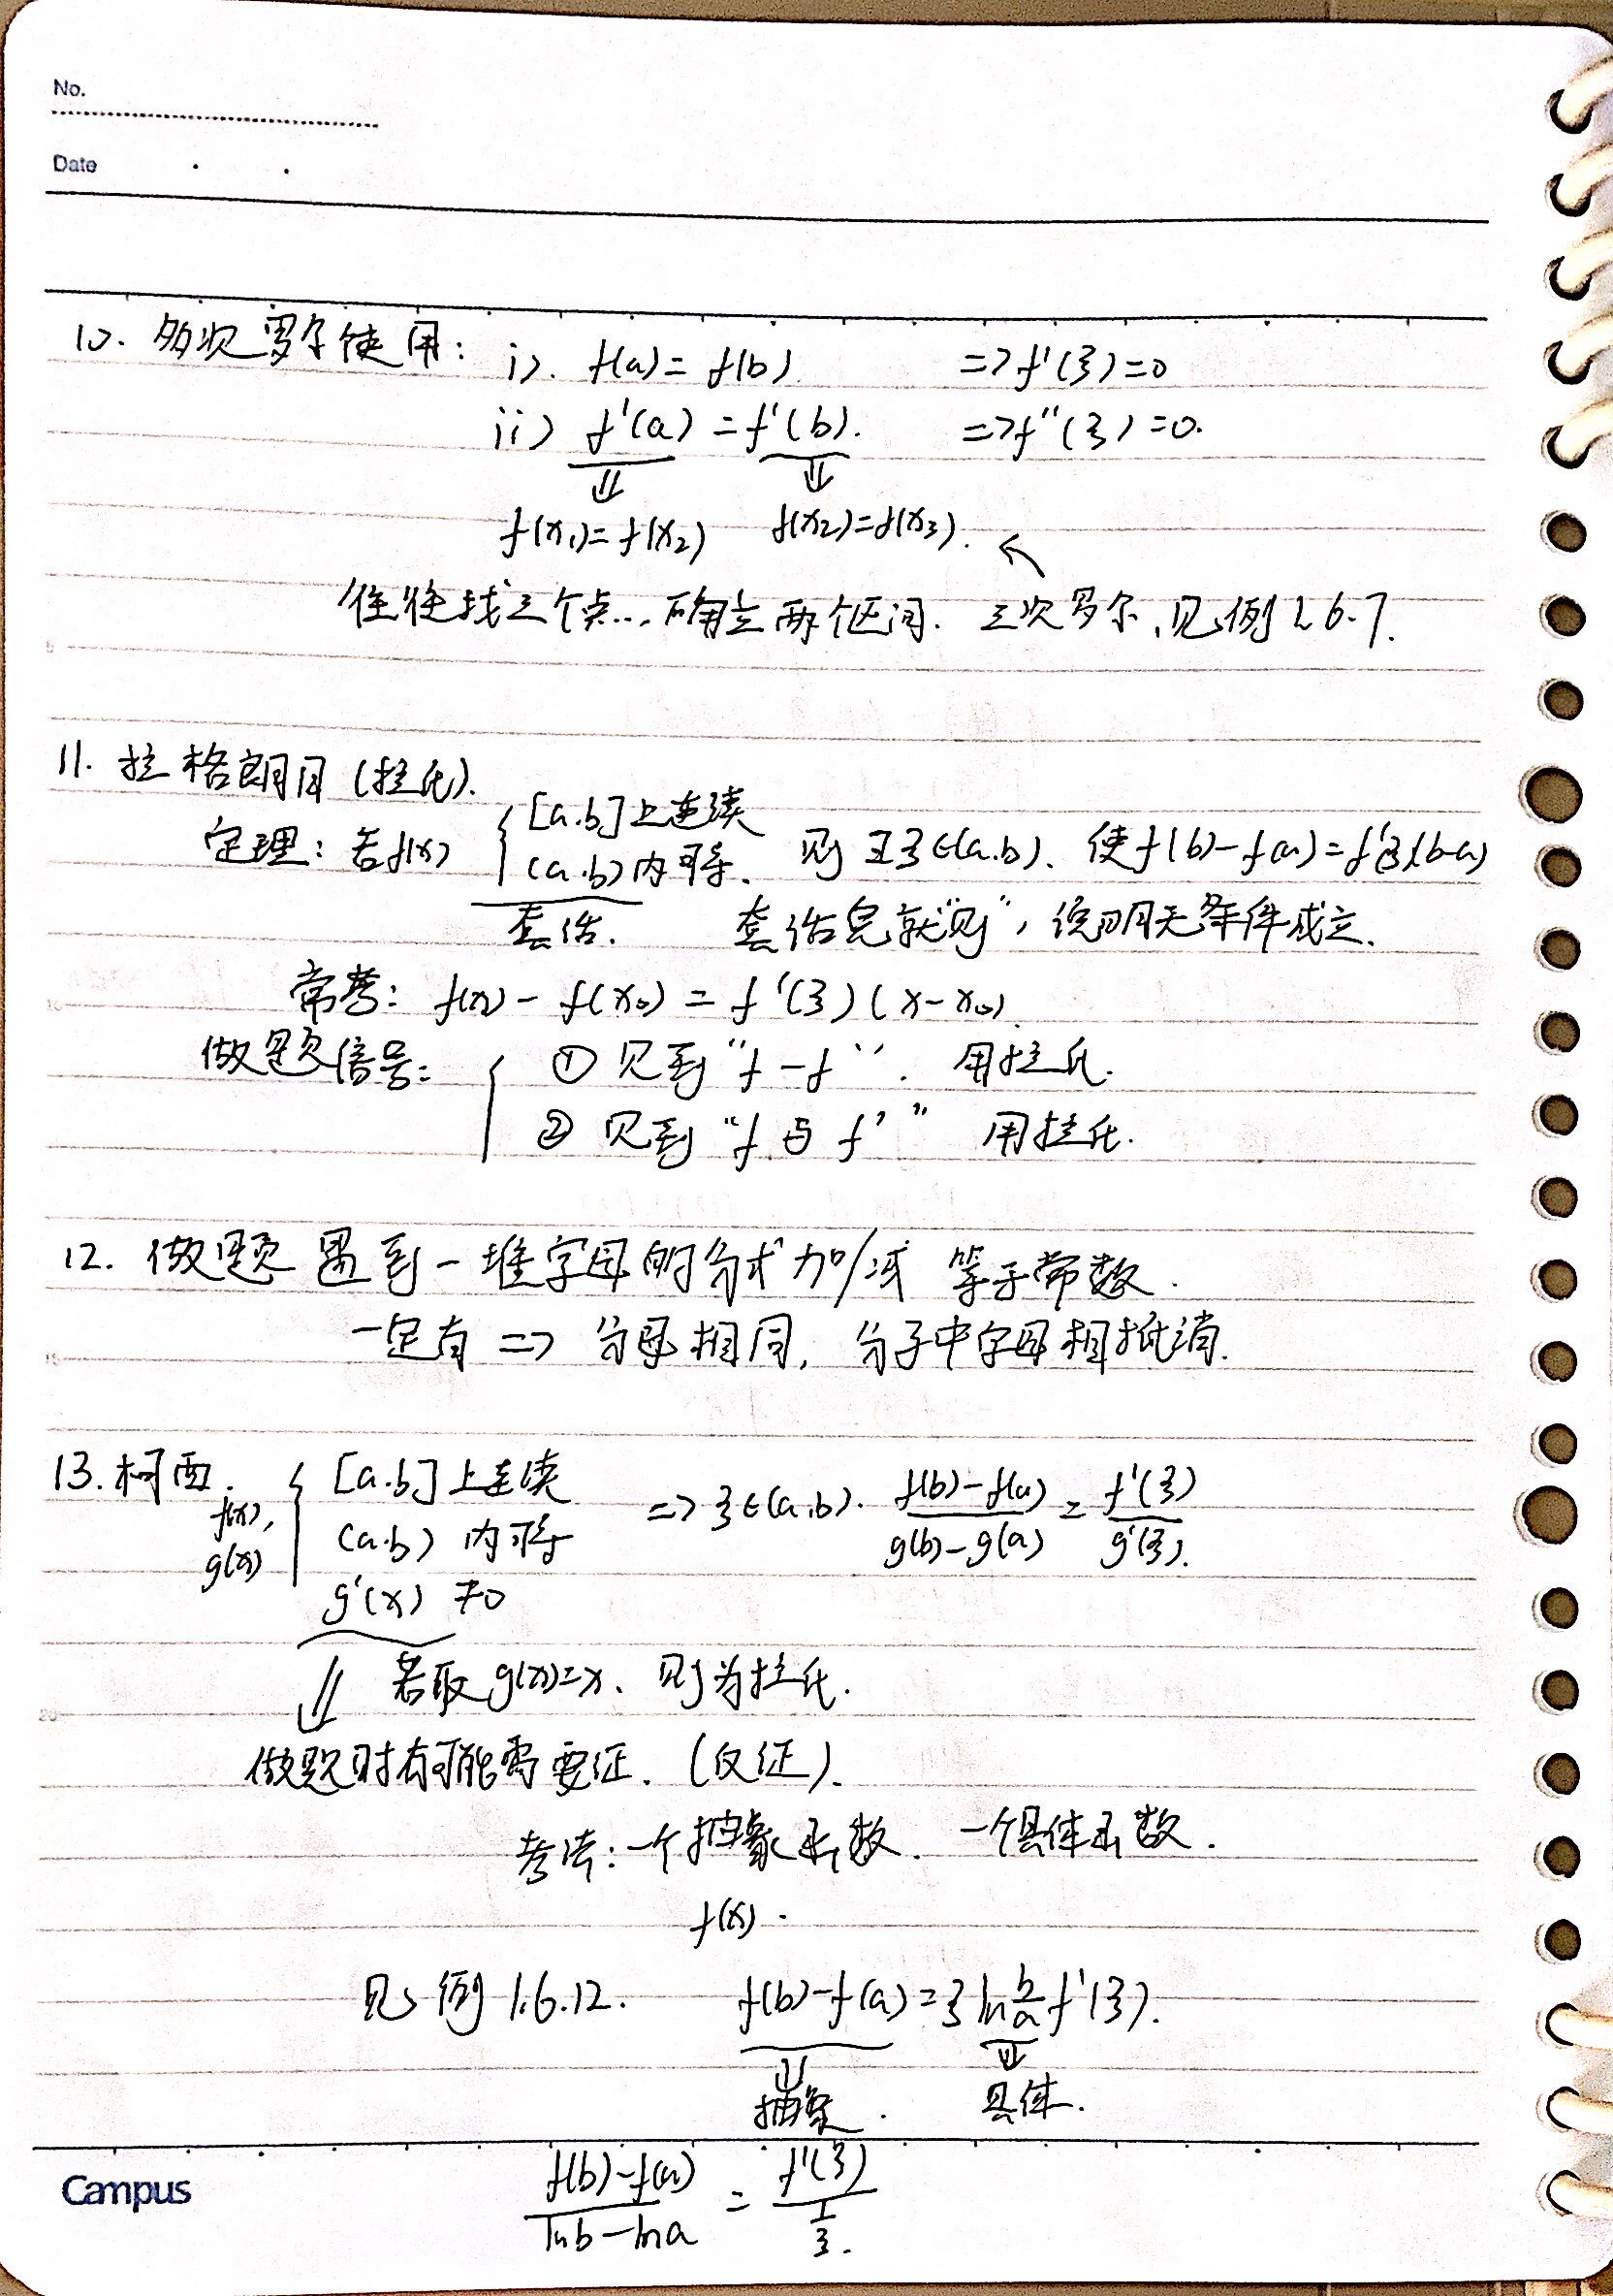 No.
Date
10. 多次罗尔使用: i). f(a)=f(b) => f'(ξ)=0
ii) f'(a)=f'(b). => f''(ξ)=0.
⇓ ⇓
f(x₁)=f(x₂) f(x₂)=f(x₃).
往往找三个点...确立两个区间. 三次罗尔,见例1.6.7.
11. 拉格朗日(拉氏).
定理: 若f(x) { [a.b]上连续
(a.b)内可导. 则 ∃ξ∈(a.b). 使f(b)-f(a)=f'(ξ)(b-a)
套话. 套话完就"则", 说明无条件成立.
常考: f(x)-f(x₀)=f'(ξ)(x-x₀).
做题信号: { ① 见到"f-f". 用拉氏.
② 见到"f与f'" 用拉氏.
12. 做题遇到一堆字母的分式加/减 等于常数.
一定有 => 分母相同, 分子中字母相抵消.
13. 柯西. f(x), g(x) { [a.b]上连续
(a.b) 内可导 => ξ∈(a,b). \frac{f(b)-f(a)}{g(b)-g(a)} = \frac{f'(ξ)}{g'(ξ)}.
g'(x) ≠0
⇓ 若取g(x)=x. 则为拉氏.
做题时有可能需要证. (反证).
考法: 一个抽象函数. 一个具体函数.
f(x).
见例1.6.12. f(b)-f(a)=ξ ln\frac{b}{a} f'(ξ).
⇓ ⇓
抽象. 具体.
\frac{f(b)-f(a)}{ln b-ln a} = \frac{f'(ξ)}{\frac{1}{ξ}}.
Campus